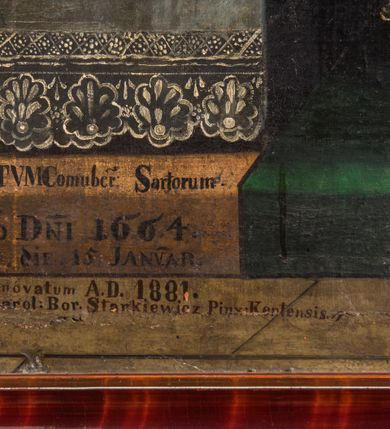 TVM Comuber. Sartorum.
o Dn̄i 1664.
die 15 Janvar.
novatum A.D. 1881.
arol: Bor. Starkiewicz Pinx: Kentensis.